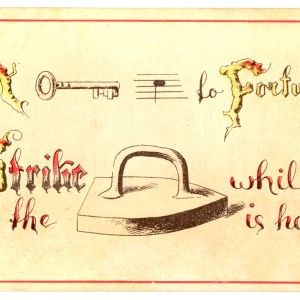 A to Fortu
Strike whil
the is ho